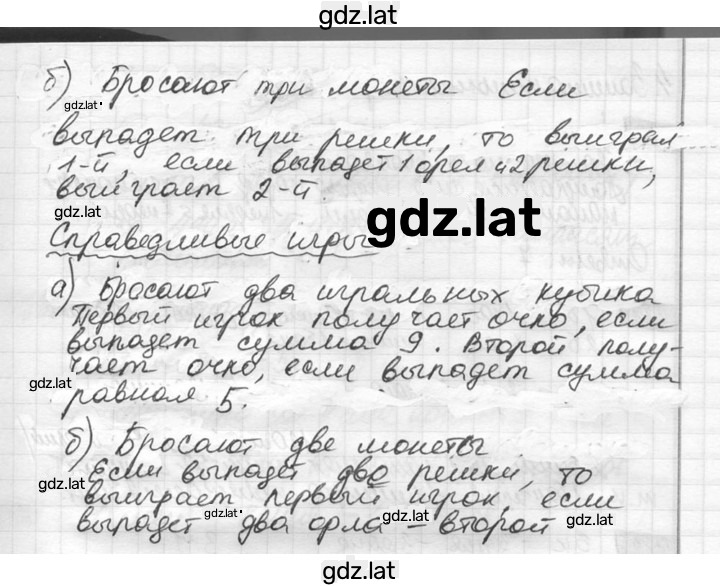 gdz.lat
б) Бросают три монеты Если
gdz.lat
выпадет три решки, то выиграл
1-й, если выпадет 1 орел и 2 решки,
выиграет 2-й.
gdz.lat
gdz.lat
Справедливые игры
а) Бросают два игральных кубика
Первый игрок получает очко, если
выпадет сумма 9. Второй полу-
чает очко, если выпадет сумма
gdz.lat
равная 5.
б) Бросают две монеты
Если выпадет две решки, то
gdz.lat
выиграет первый игрок, если
выпадет два орла – второй
gdz.lat
gdz.lat
gdz.lat
gdz.lat